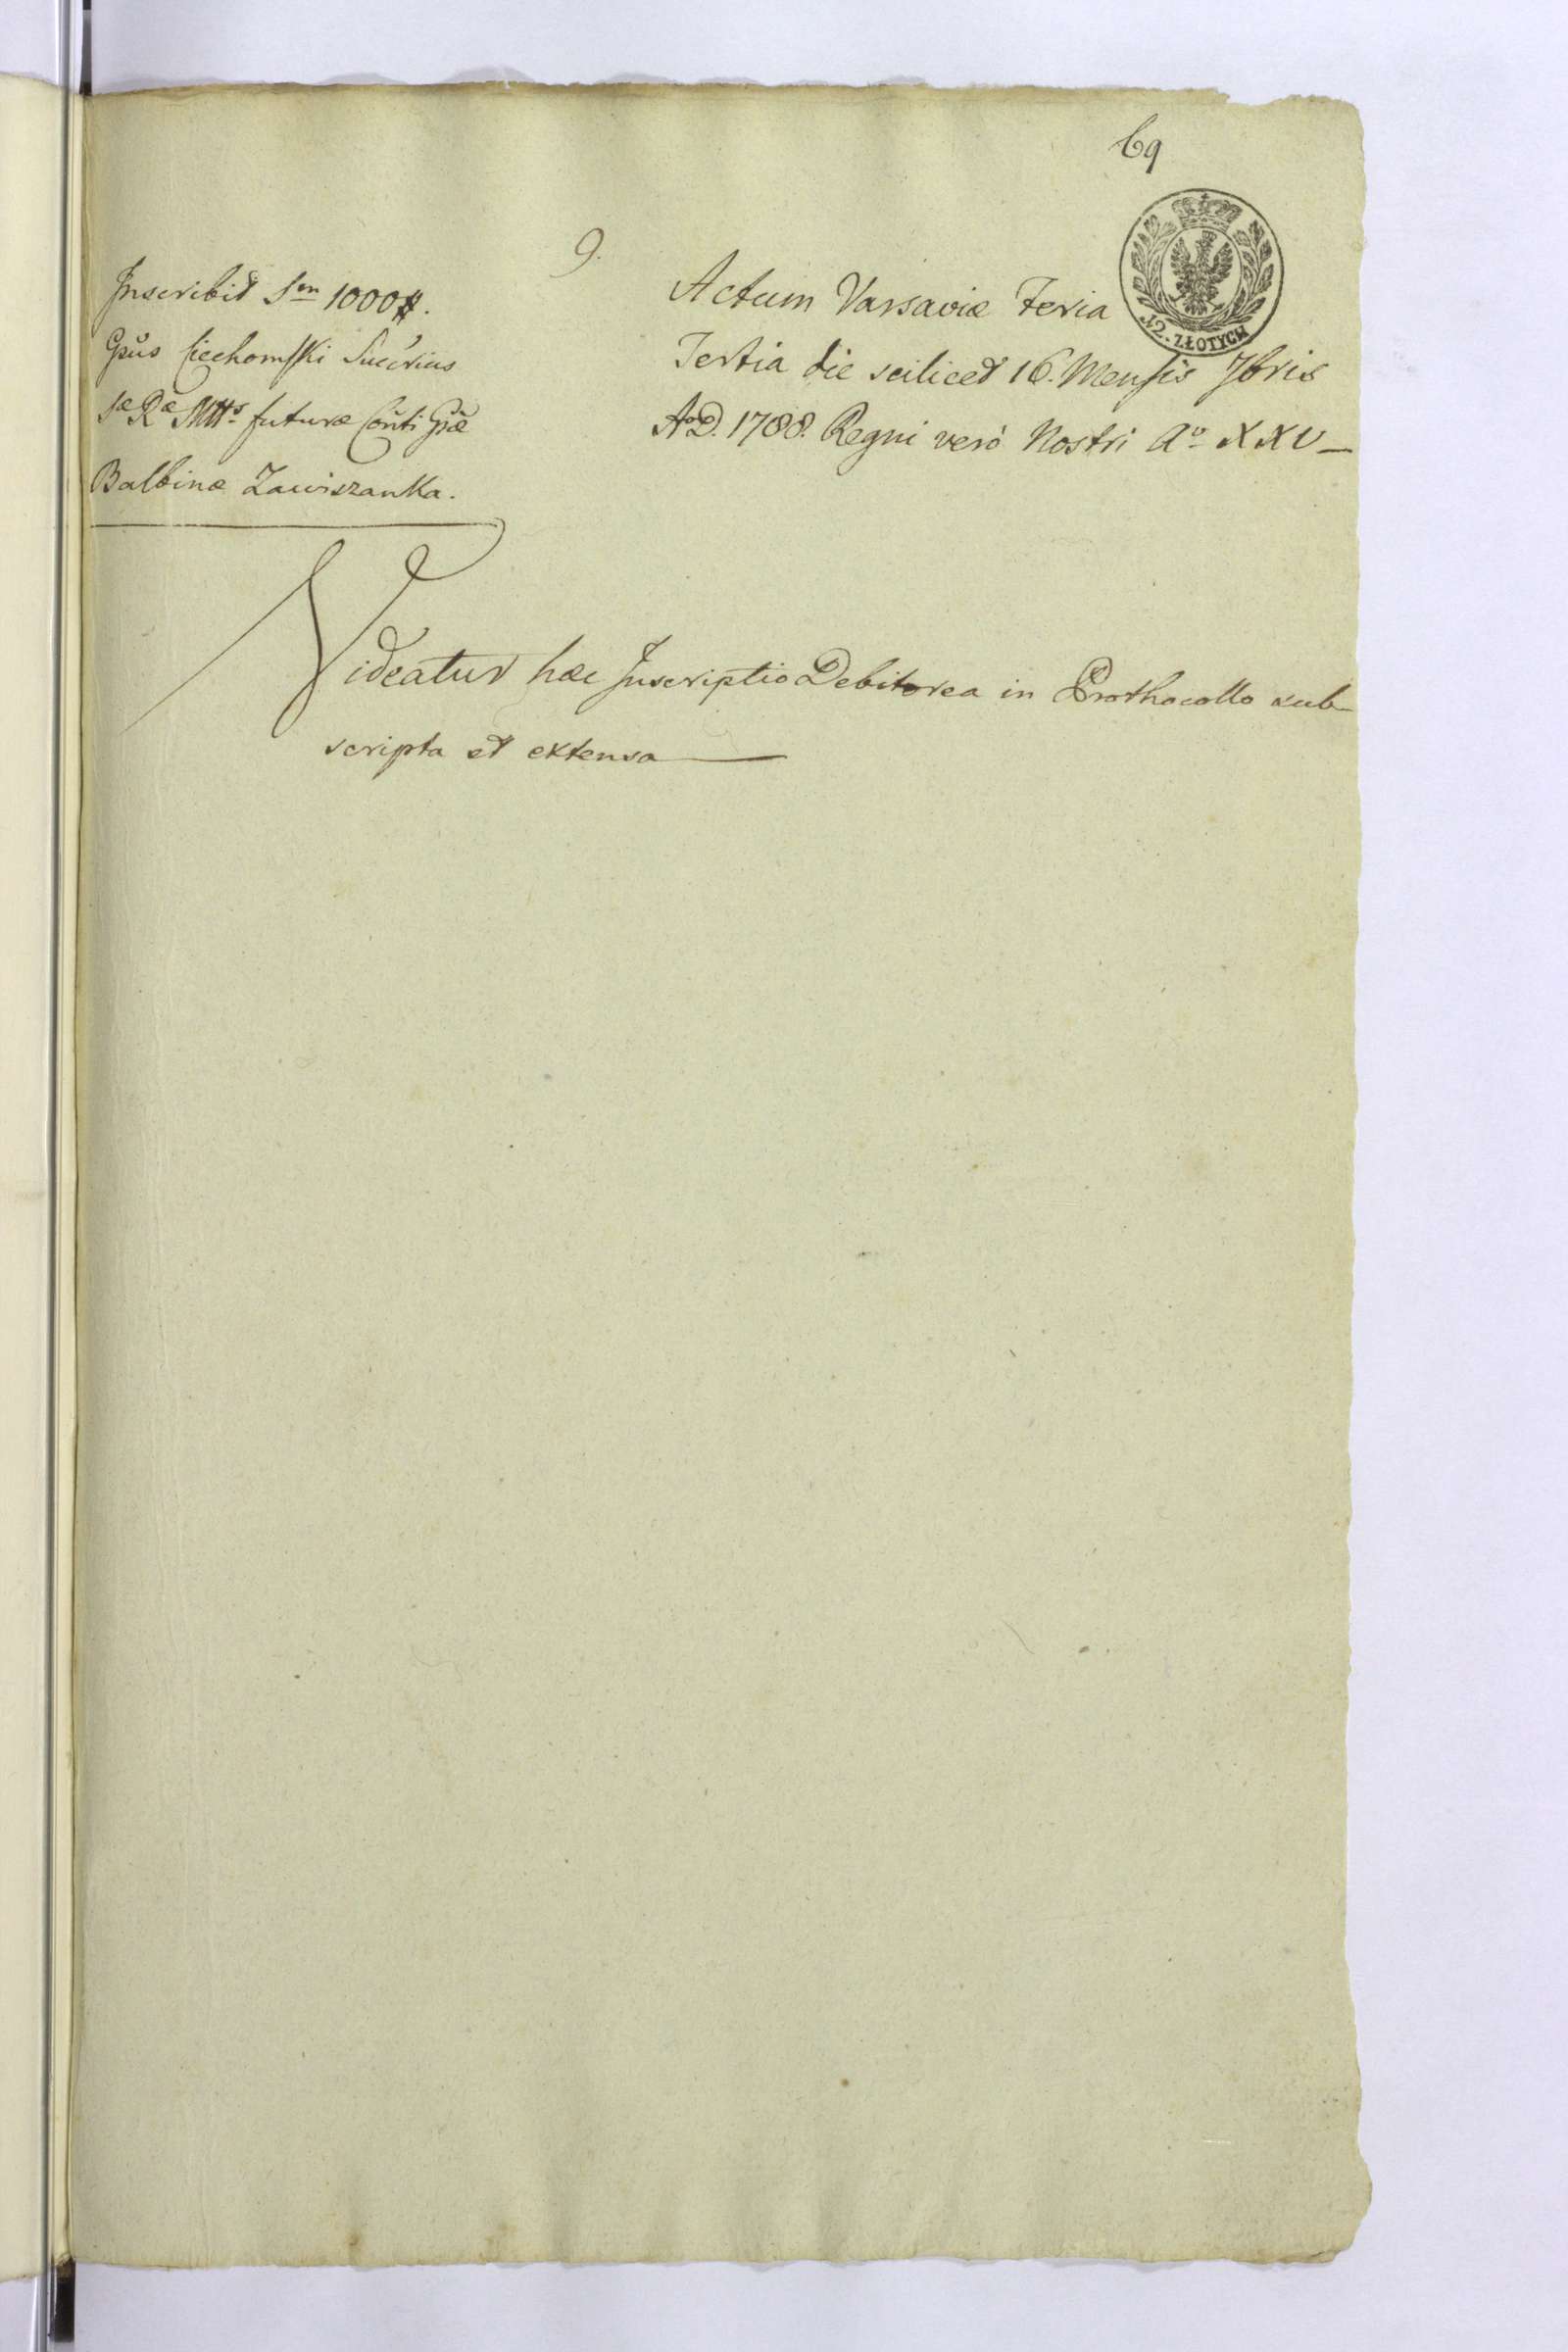 69
9.
Inscribit Sm 1000#.
Gsus Ciechomski
Sæ Ræ Mttis futuræ Conti Gsæ
Balbinæ Zawiszanka.
Actum Varsaviæ Feria
Tertia die scilicet 16. Mensis 7bris
AoD. 1788. Regni verò Nostri Ao XXV
12. ZŁOTYCH
Videatur hæc Inscriptio Debitorea in Prothocollo sub
scripta et extensa